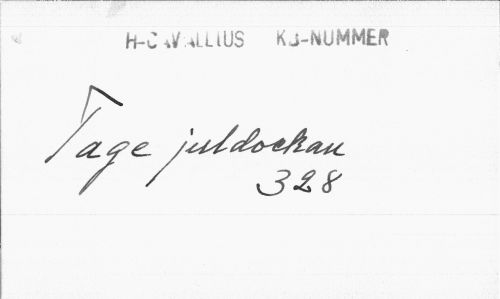 H-CAVALLIUS KB-NUMMER
Tage juldockan
328